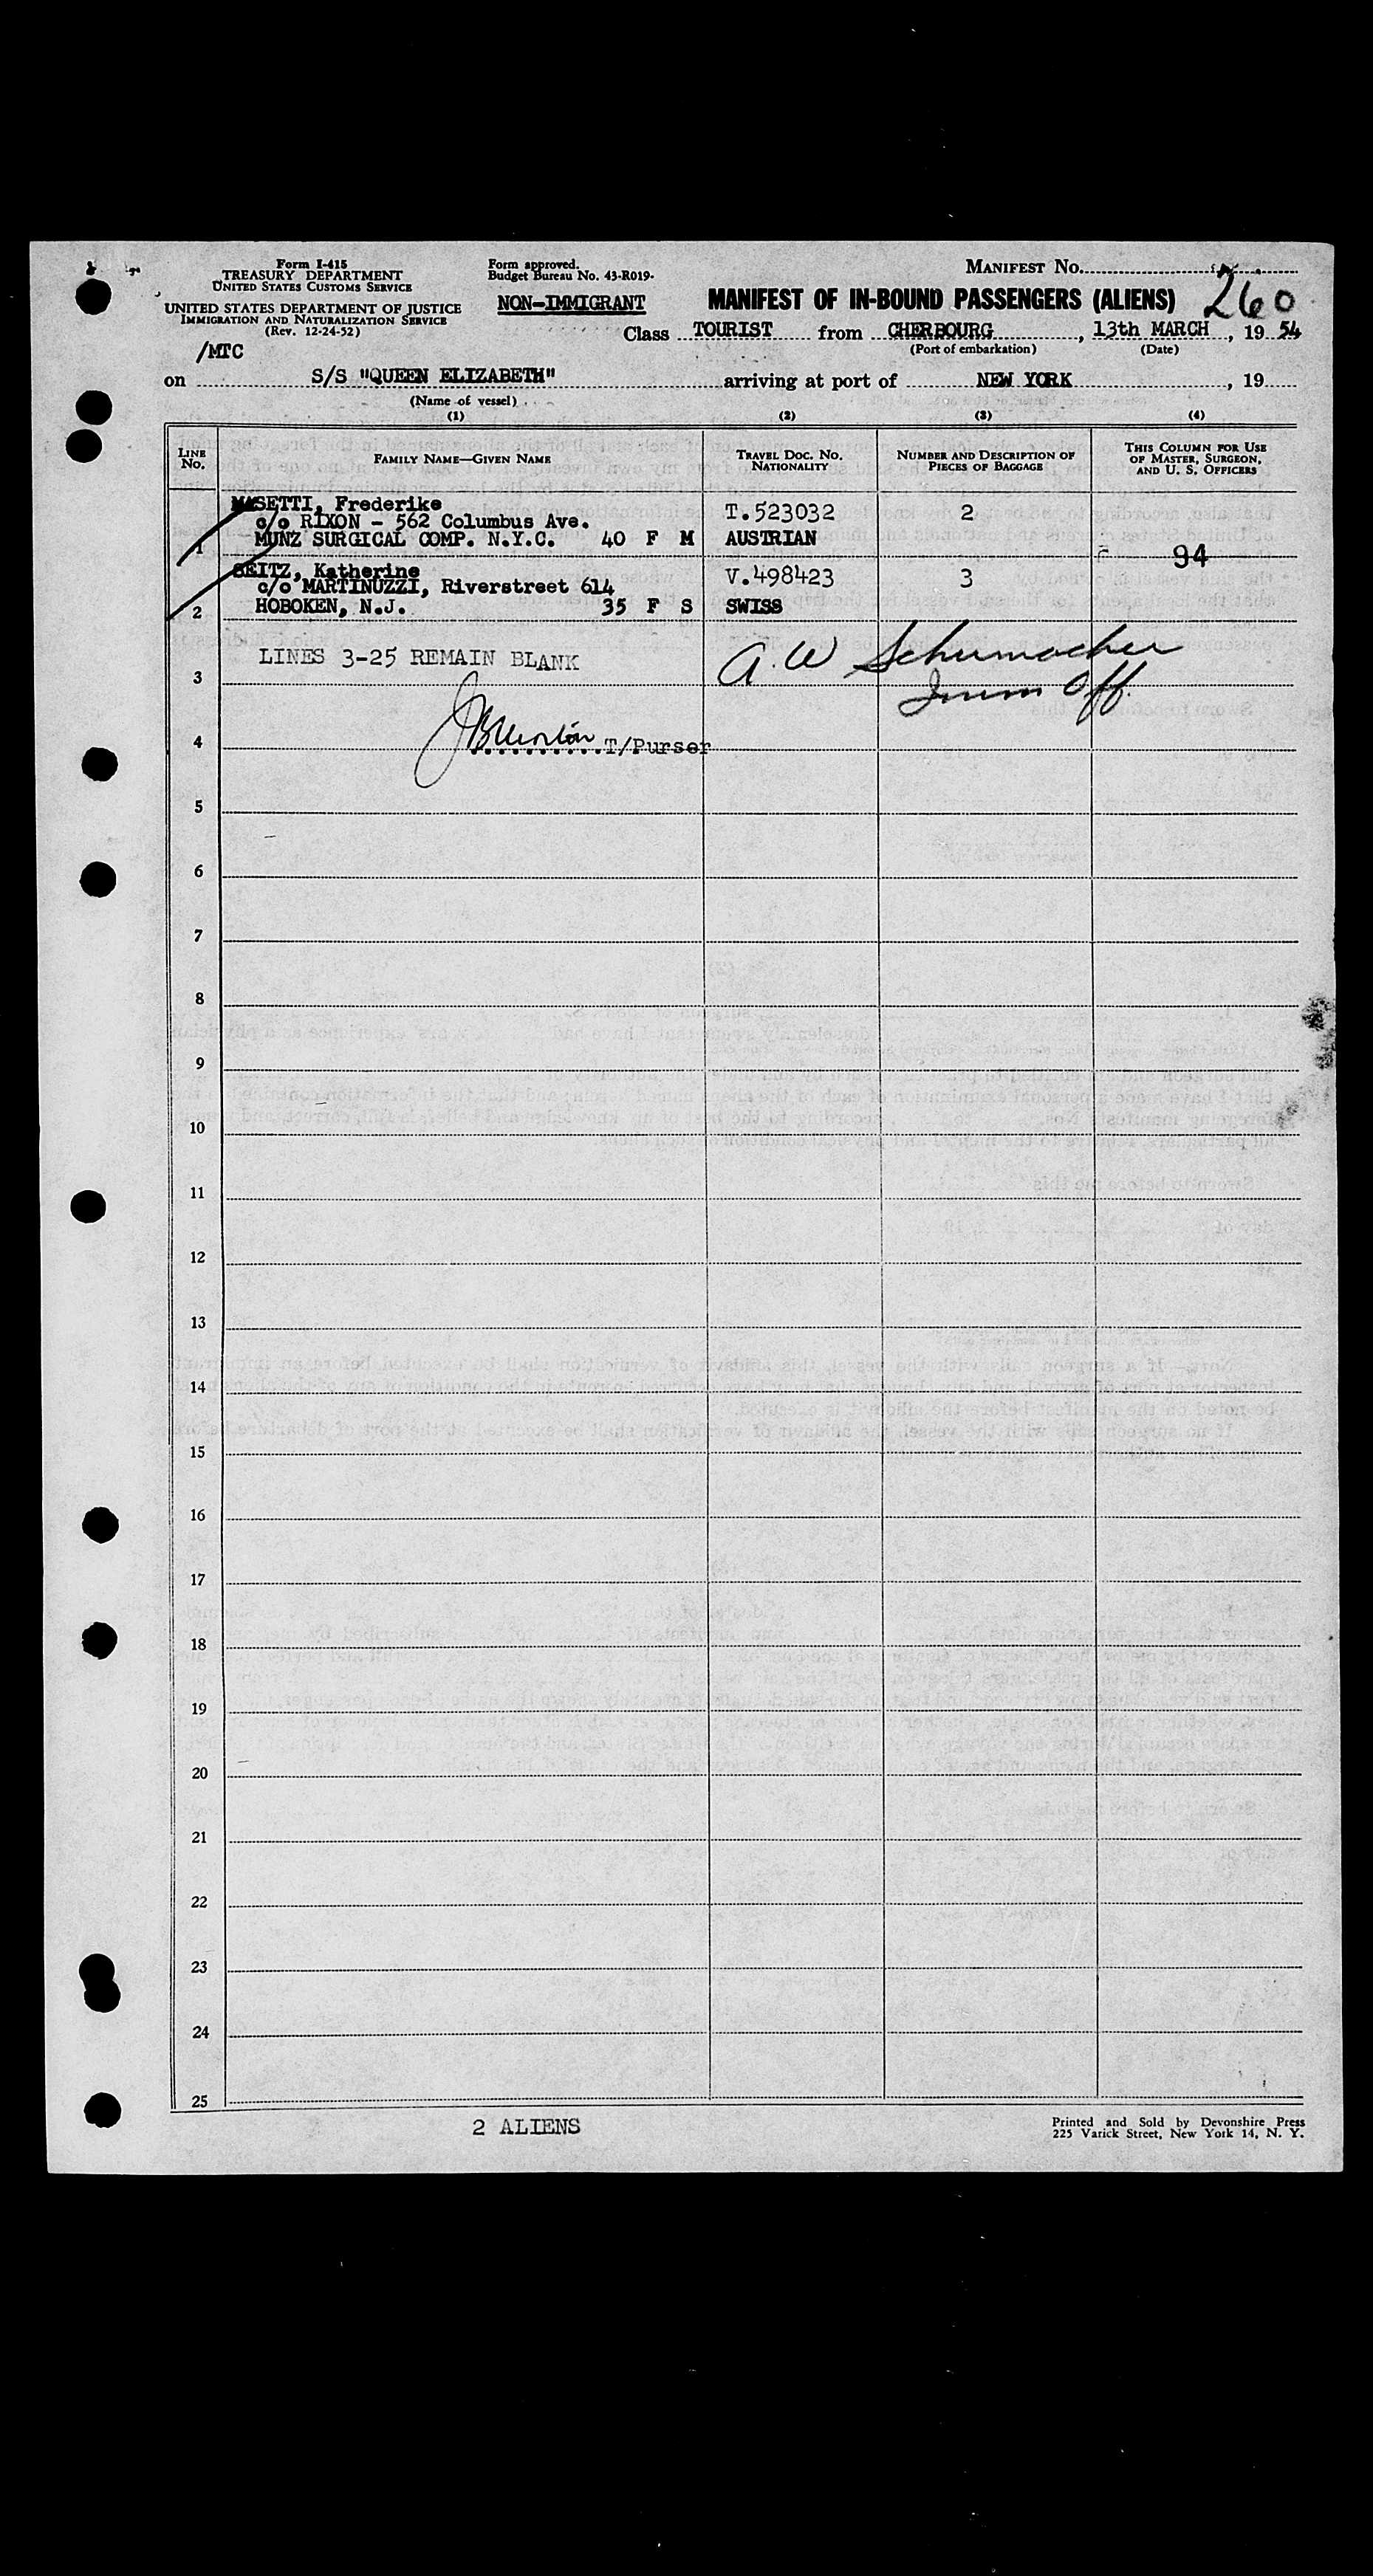 Form I-415
TREASURY DEPARTMENT
UNITED STATES CUSTOMS SERVICE
UNITED STATES DEPARTMENT OF JUSTICE
IMMIGRATION AND NATURALIZATION SERVICE
(Rev. 12-24-52)
Form approved.
Budget Bureau No. 43-R019.
NON-IMMIGRANT
MANIFEST No.
260
MANIFEST OF IN-BOUND PASSENGERS (ALIENS)
Class TOURIST from CHERBOURG, 13th MARCH, 19 54
(Port of embarkation) (Date)
/MTC
on S/S "QUEEN ELIZABETH" arriving at port of NEW YORK, 19
(Name of vessel)
(1) (2) (3) (4)
LINE No. FAMILY NAME—GIVEN NAME TRAVEL DOC. No. NATIONALITY NUMBER AND DESCRIPTION OF PIECES OF BAGGAGE THIS COLUMN FOR USE OF MASTER, SURGEON, AND U. S. OFFICERS
MASETTI, Frederike T.523032 2
c/o RIXON - 562 Columbus Ave.
1 MUNZ SURGICAL COMP. N.Y.C. 40 F M AUSTRIAN 94
SEITZ, Katherine V.498423 3
c/o MARTINUZZI, Riverstreet 614
2 HOBOKEN, N.J. 35 F S SWISS
LINES 3-25 REMAIN BLANK A. W Schumacher
3 Imm Off.
4 T/Purser
5
6
7
8
9
10
11
12
13
14
15
16
17
18
19
20
21
22
23
24
25
2 ALIENS
Printed and Sold by Devonshire Press
225 Varick Street, New York 14, N. Y.